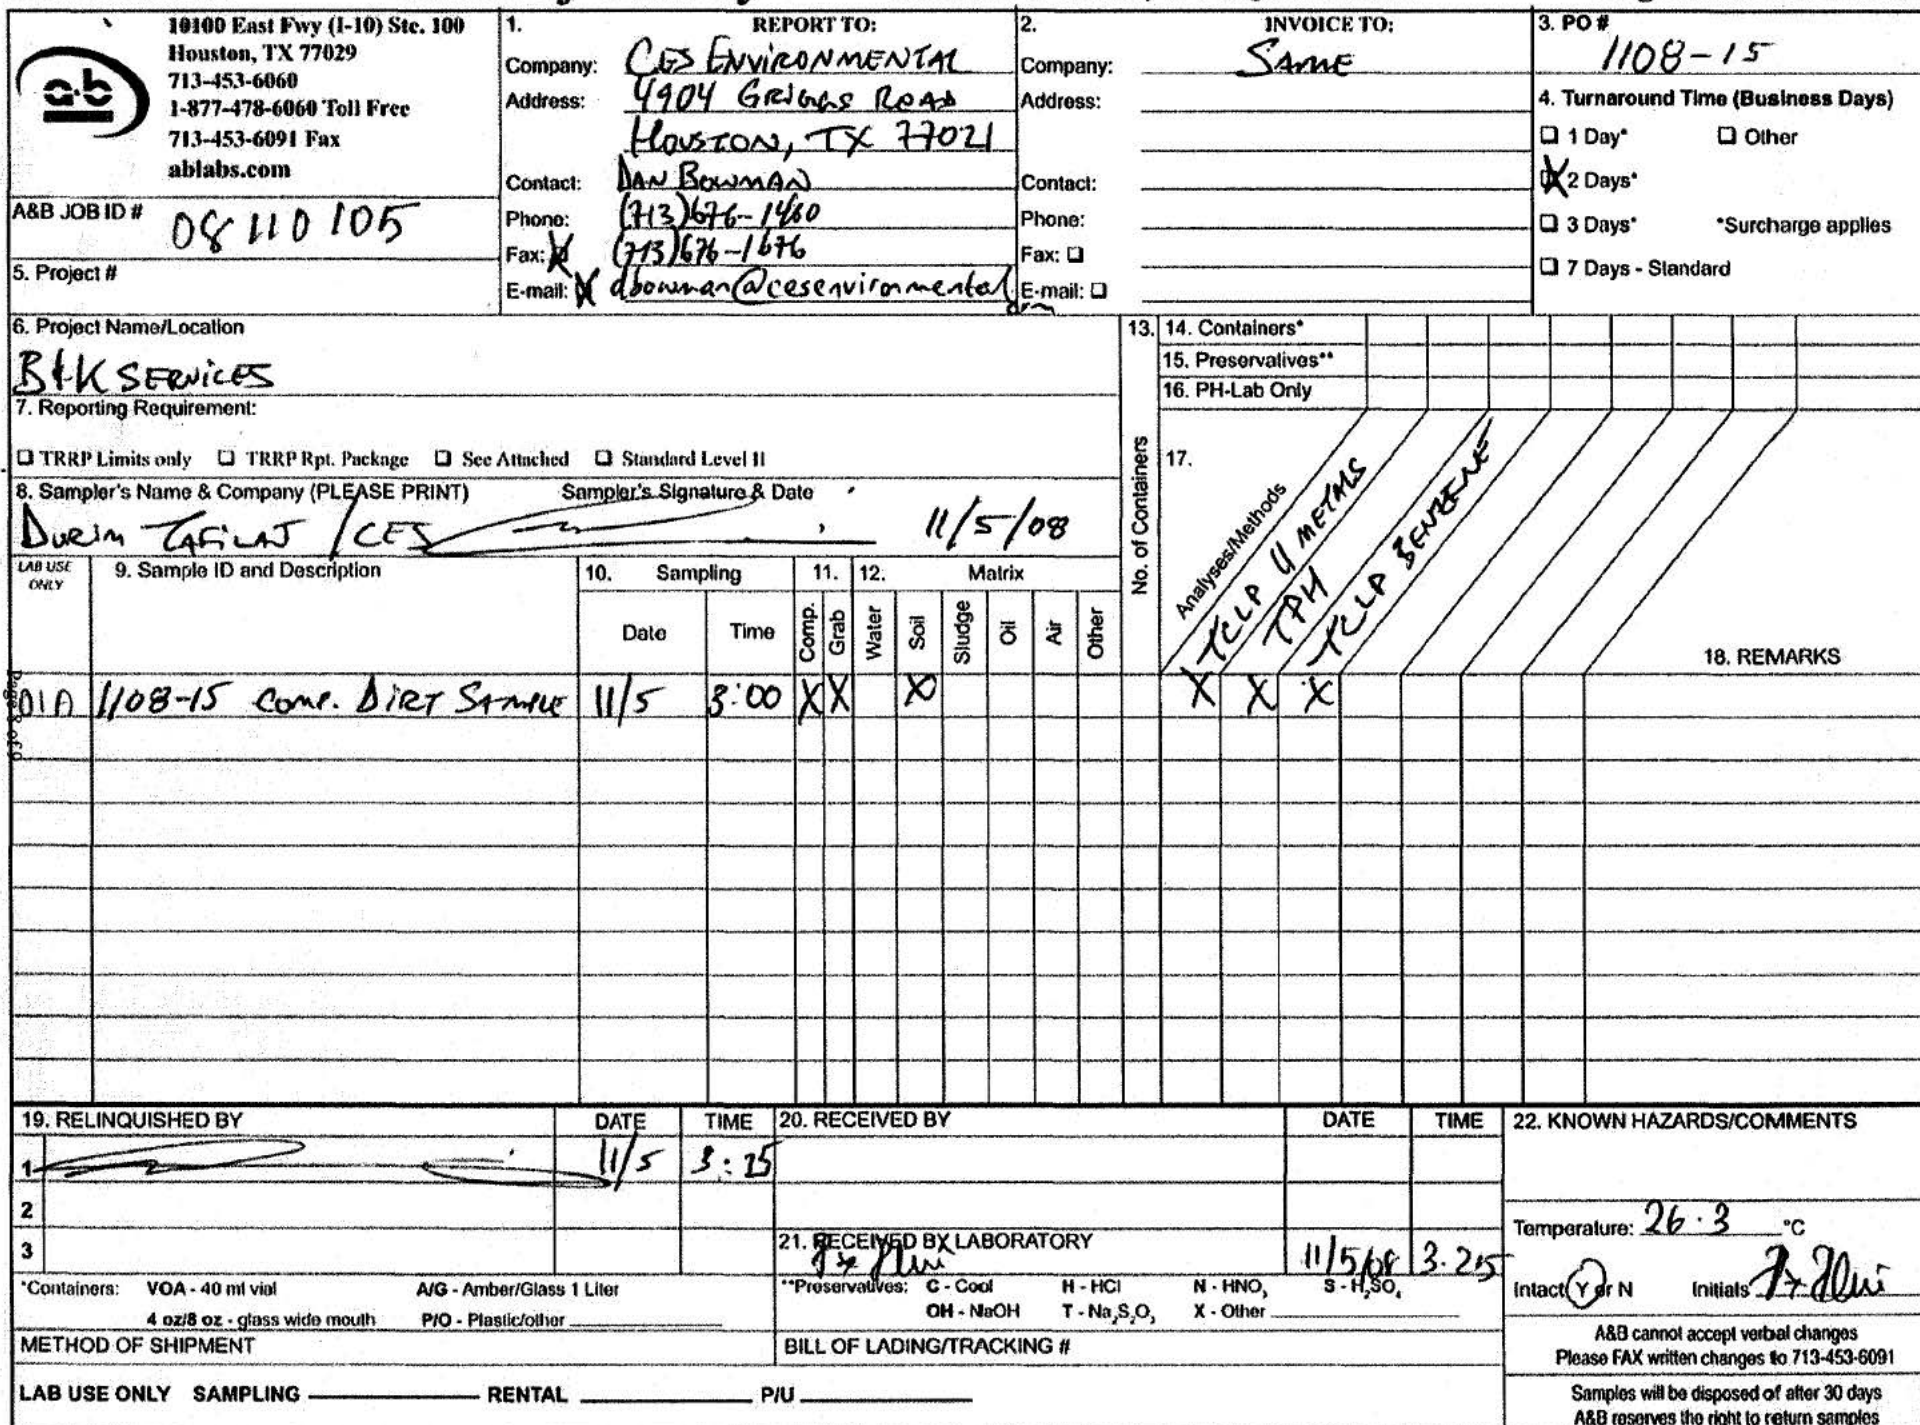 10100 East Fwy (I-10) Ste. 100
Houston, TX 77029
713-453-6060
1-877-478-6060 Toll Free
713-453-6091 Fax
ablabs.com
a·b
A&B JOB ID # 08110105
5. Project #
1. REPORT TO:
Company: CES ENVIRONMENTAL
Address: 4904 GRIGGS ROAD
HOUSTON, TX 77021
Contact: DAN BOWMAN
Phone: (713)676-1460
Fax: X (713)676-1676
E-mail: X dbowman@cesenvironmental
2. INVOICE TO:
Company: SAME
Address:
Contact:
Phone:
Fax: ☐
E-mail: ☐
3. PO #
1108-15
4. Turnaround Time (Business Days)
☐ 1 Day* ☐ Other
X 2 Days*
☐ 3 Days* *Surcharge applies
☐ 7 Days - Standard
6. Project Name/Location
B&K SERVICES
7. Reporting Requirement:
☐ TRRP Limits only ☐ TRRP Rpt. Package ☐ See Attached ☐ Standard Level II
8. Sampler's Name & Company (PLEASE PRINT) Sampler's Signature & Date
DURIM TAFILAJ /CES 11/5/08
13. No. of Containers
14. Containers*
15. Preservatives**
16. PH-Lab Only
17. Analyses/Methods
TCLP 11 METALS
TPH
TCLP BENZENE
18. REMARKS
LAB USE ONLY
9. Sample ID and Description
10. Sampling
Date Time
11. Comp. Grab
12. Matrix
Water Soil Sludge Oil Air Other
01A 1108-15 COMP. DIRT SAMPLE 11/5 3:00 X X X X X X
19. RELINQUISHED BY DATE TIME
1 11/5 3:25
2
3
20. RECEIVED BY DATE TIME
21. RECEIVED BY LABORATORY 11/5/08 3.25
22. KNOWN HAZARDS/COMMENTS
Temperature: 26.3 °C
Intact Y or N Initials
*Containers: VOA - 40 ml vial A/G - Amber/Glass 1 Liter
4 oz/8 oz - glass wide mouth P/O - Plastic/other
**Preservatives: C - Cool H - HCl N - HNO₃ S - H₂SO₄
OH - NaOH T - Na₂S₂O₃ X - Other
METHOD OF SHIPMENT
BILL OF LADING/TRACKING #
A&B cannot accept verbal changes
Please FAX written changes to 713-453-6091
LAB USE ONLY SAMPLING RENTAL P/U
Samples will be disposed of after 30 days
A&B reserves the right to return samples